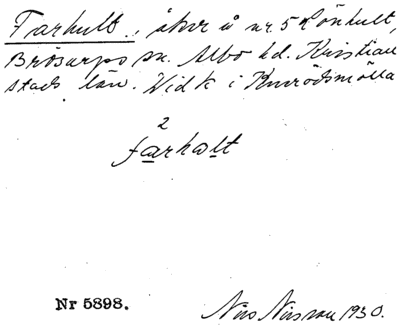 Farhult, åker å nr 5 Lönhult,
Brösarps sn. Albo hd. Kristian
stads län. Vid k i
2
farhalt
Nr 5898.
Nils Nilsson 1930.